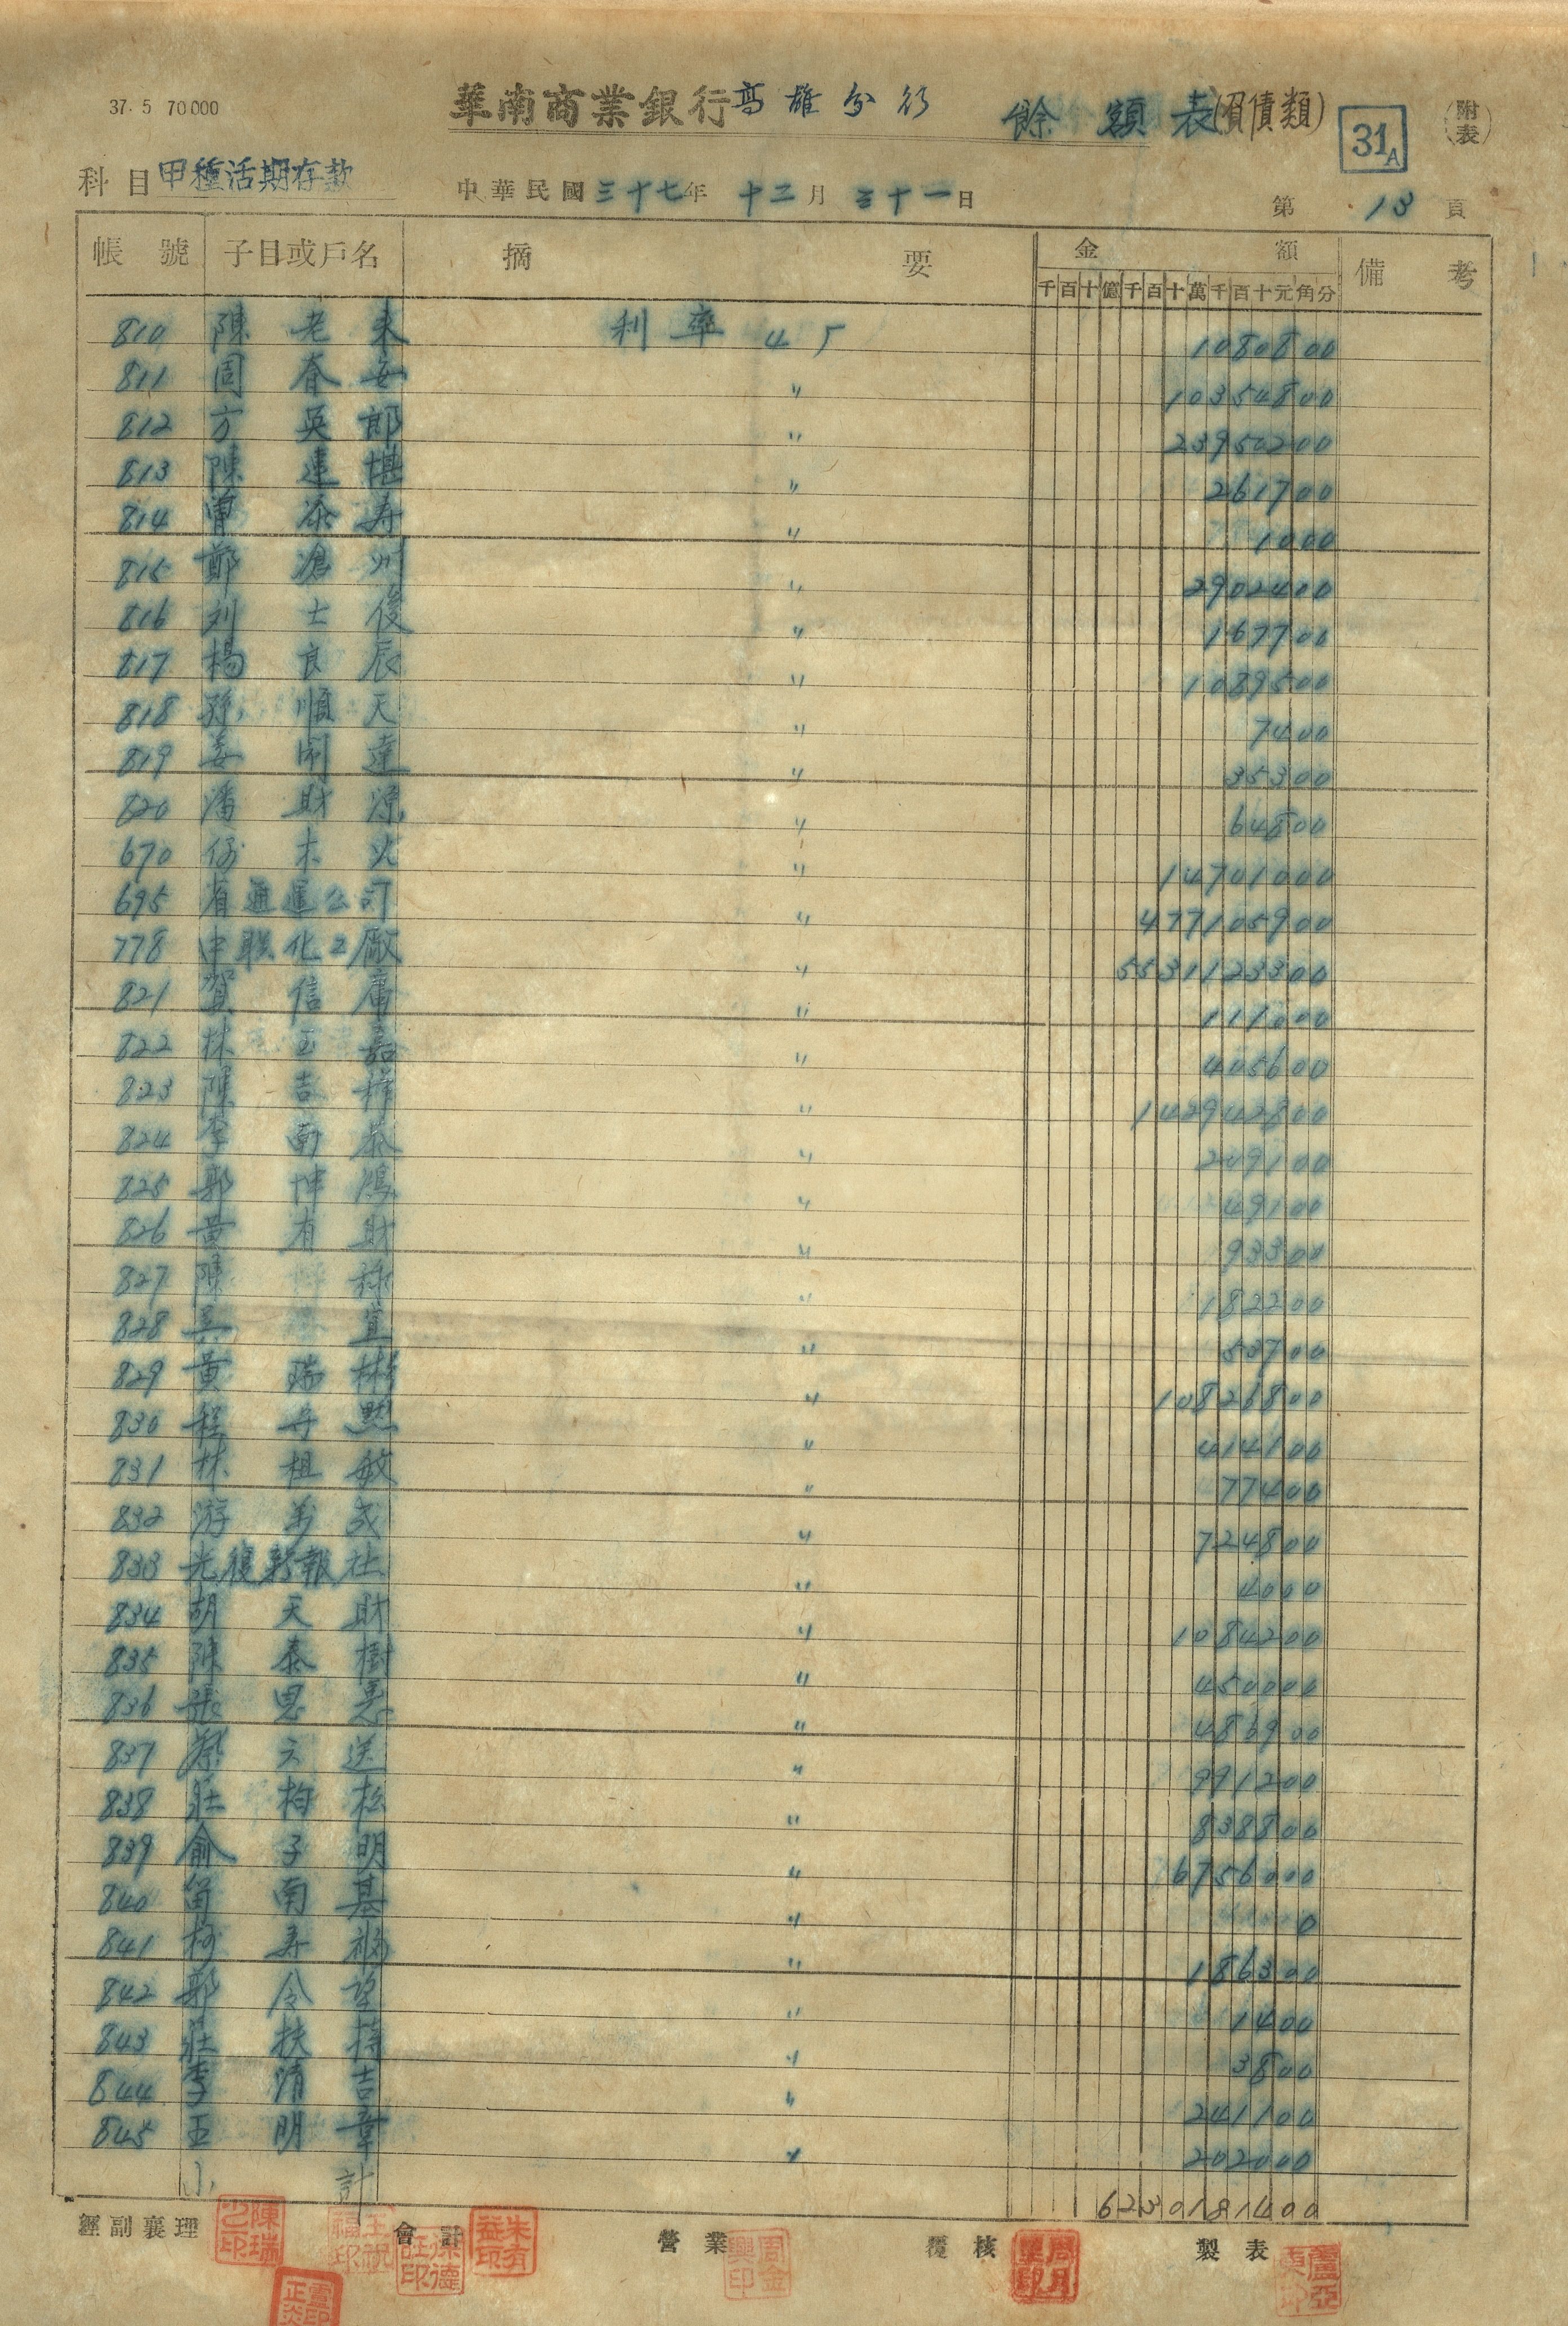 37. 5 70000
華南商業銀行高雄分行 餘額表(負債類) 31A (附表)
科目 甲種活期存款 中華民國三十七年 十二月 三十一日 第 13 頁
帳號 子目或戶名 摘要 金額 備考
千百十億千百十萬千百十元角分
810 陳老來 利率 45 1080800
811 周春安 〃 10354800
812 方英郎 〃 23950200
813 陳連堪 〃 261700
814 曾添寿 〃 1000
815 鄭滄州 〃 2902400
816 刘士俊 〃 167700
817 楊良辰 〃 1089500
818 孫順天 〃 7400
819 姜開運 〃 35300
820 潘財源 〃 64800
670 木火 〃 14701000
695 省通運公司 〃 477105900
778 中联化工廠 〃 5531123300
821 賀信庸 〃 111000
822 林玉嘉 〃 405600
823 陳吉 〃 142942800
824 李南泰 〃 249100
825 郭坤鴻 〃 49100
826 黃有財 〃 93300
827 陳 〃 182200
828 吳 宜 〃 53700
829 黃瑞彬 〃 10826800
830 程丹 〃 414100
831 林祖敏 〃 77400
832 游芳成 〃 724800
833 光復新報社 〃 4000
834 胡天財 〃 1084200
835 陳泰樹 〃 450000
836 張思惠 〃 486900
837 蔡天送 〃 991200
838 莊柏松 〃 838800
839 俞子明 〃 6756000
840 南基 〃 0
841 柯寿福 〃 186300
842 郭令望 〃 1400
843 莊扶持 〃 3800
844 李清吉 〃 241100
845 王明章 〃 202000
小計 6230181400
經副襄理 會計 營業 覆核 製表